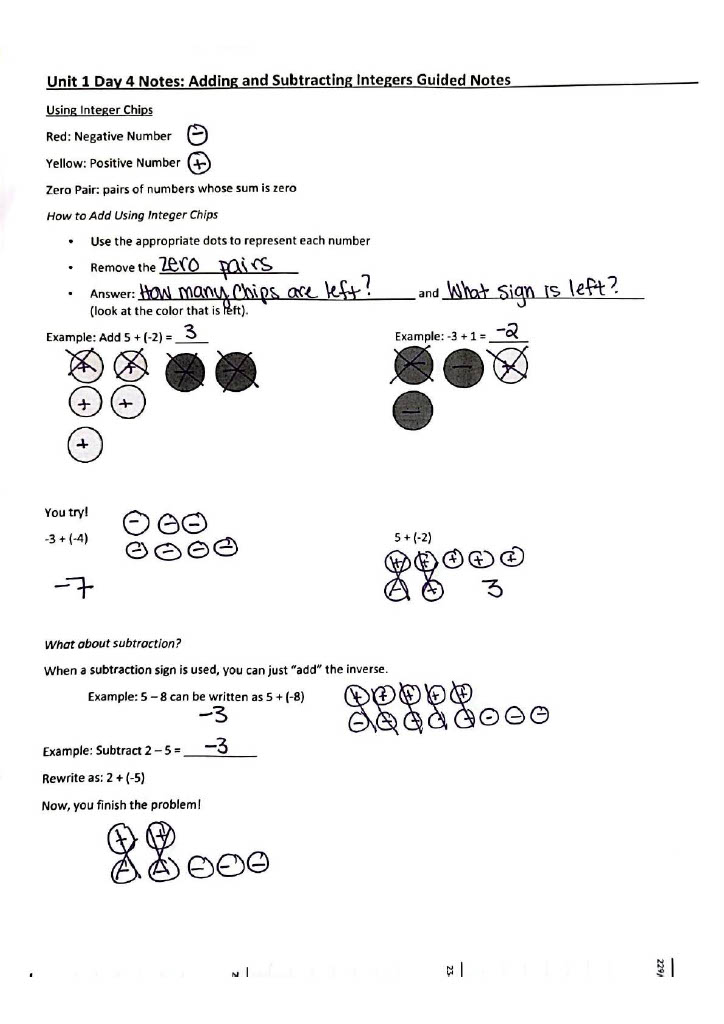 Unit 1 Day 4 Notes: Adding and Subtracting Integers Guided Notes
Using Integer Chips
Red: Negative Number −
Yellow: Positive Number +
Zero Pair: pairs of numbers whose sum is zero
How to Add Using Integer Chips
• Use the appropriate dots to represent each number
• Remove the zero pairs
• Answer: How many chips are left? and What sign is left?
(look at the color that is left).
Example: Add 5 + (-2) = 3
Example: -3 + 1 = -2
+ + − −
− − +
+ +
−
+
You try!
− − −
-3 + (-4)
− − − −
5 + (-2)
+ + + + +
− −
-7
3
What about subtraction?
When a subtraction sign is used, you can just "add" the inverse.
Example: 5 – 8 can be written as 5 + (-8)
+ + + + +
-3
− − − − − − − −
Example: Subtract 2 – 5 = -3
Rewrite as: 2 + (-5)
Now, you finish the problem!
+ +
− − − − −